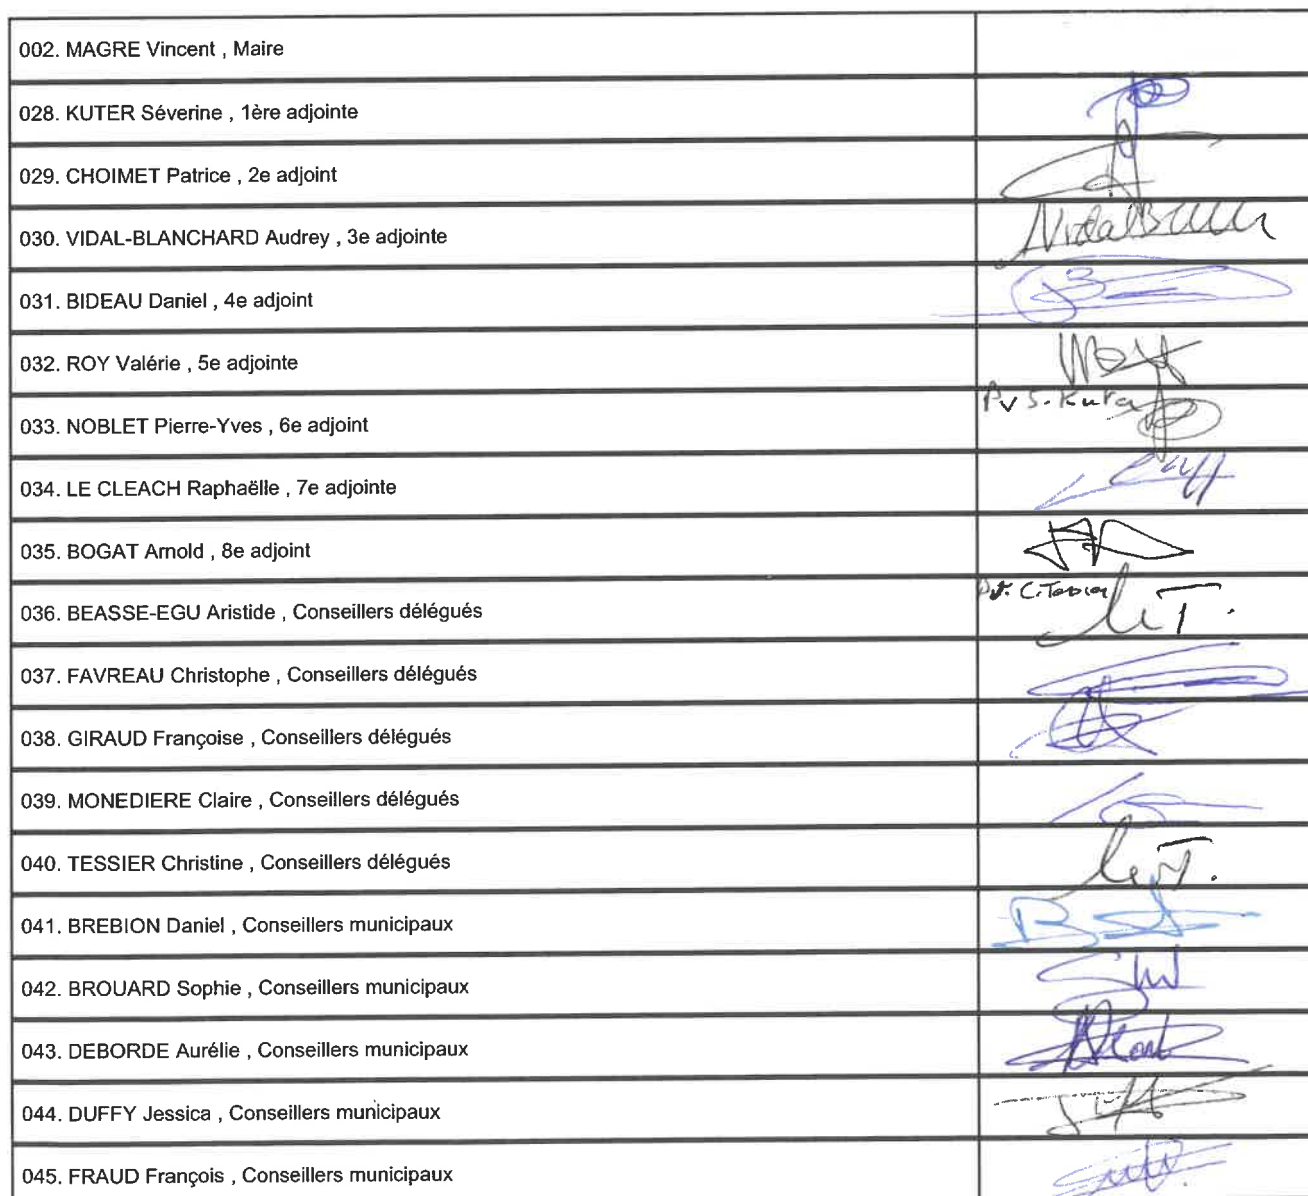 002. MAGRE Vincent , Maire
028. KUTER Séverine , 1ère adjointe
029. CHOIMET Patrice , 2e adjoint
030. VIDAL-BLANCHARD Audrey , 3e adjointe
031. BIDEAU Daniel , 4e adjoint
032. ROY Valérie , 5e adjointe
033. NOBLET Pierre-Yves , 6e adjoint
034. LE CLEACH Raphaëlle , 7e adjointe
035. BOGAT Arnold , 8e adjoint
036. BEASSE-EGU Aristide , Conseillers délégués
037. FAVREAU Christophe , Conseillers délégués
038. GIRAUD Françoise , Conseillers délégués
039. MONEDIERE Claire , Conseillers délégués
040. TESSIER Christine , Conseillers délégués
041. BREBION Daniel , Conseillers municipaux
042. BROUARD Sophie , Conseillers municipaux
043. DEBORDE Aurélie , Conseillers municipaux
044. DUFFY Jessica , Conseillers municipaux
045. FRAUD François , Conseillers municipaux